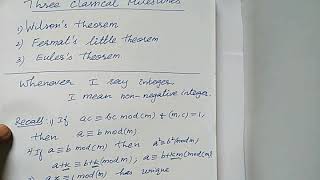 Three Classical Milestones
1) Wilson's theorem
2) Fermat's little theorem
3) Euler's theorem
Whenever I say integer
I mean non-negative integer.
Recall: 1) If ac ≡ bc mod(m) & (m,c)=1,
then a ≡ b mod(m)
2) If a ≡ b mod(m) then a² ≡ b² (mod m)
a+k ≡ b+k (mod m), a ≡ b+km (mod m)
ax ≡ 1 mod(m) has unique